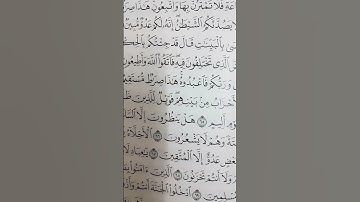 اعَةِ فَلَا تَمْتَرُنَّ بِهَا وَاتَّبِعُونِ هَٰذَا صِرَ
يَصُدَّنَّكُمُ الشَّيْطَٰنُ إِنَّهُ لَكُمْ عَدُوٌّ مُّبِينٌ
ىٰ بِالْبَيِّنَٰتِ قَالَ قَدْ جِئْتُكُم بِالْحِكْ
الَّذِي تَخْتَلِفُونَ فِيهِ فَاتَّقُوا اللَّهَ وَأَطِيعُونِ
وَرَبُّكُمْ فَاعْبُدُوهُ هَٰذَا صِرَٰطٌ مُّسْتَقِيمٌ
حْزَابُ مِنۢ بَيْنِهِمْ فَوَيْلٌ لِّلَّذِينَ ظَ
وْمٍ أَلِيمٍ ٦٥ هَلْ يَنظُرُونَ إِلَّا السَّا
تَةً وَهُمْ لَا يَشْعُرُونَ ٦٦ الْأَخِلَّاءُ
عْضٍ عَدُوٌّ إِلَّا الْمُتَّقِينَ ٦٧ يَٰعِبَادِ لَا
وَلَا أَنتُمْ تَحْزَنُونَ ٦٨ الَّذِينَ ءَامَنُوا
مُسْلِمِينَ ٦٩ ادْخُلُوا الْجَنَّةَ أَنتُمْ وَأَزْ